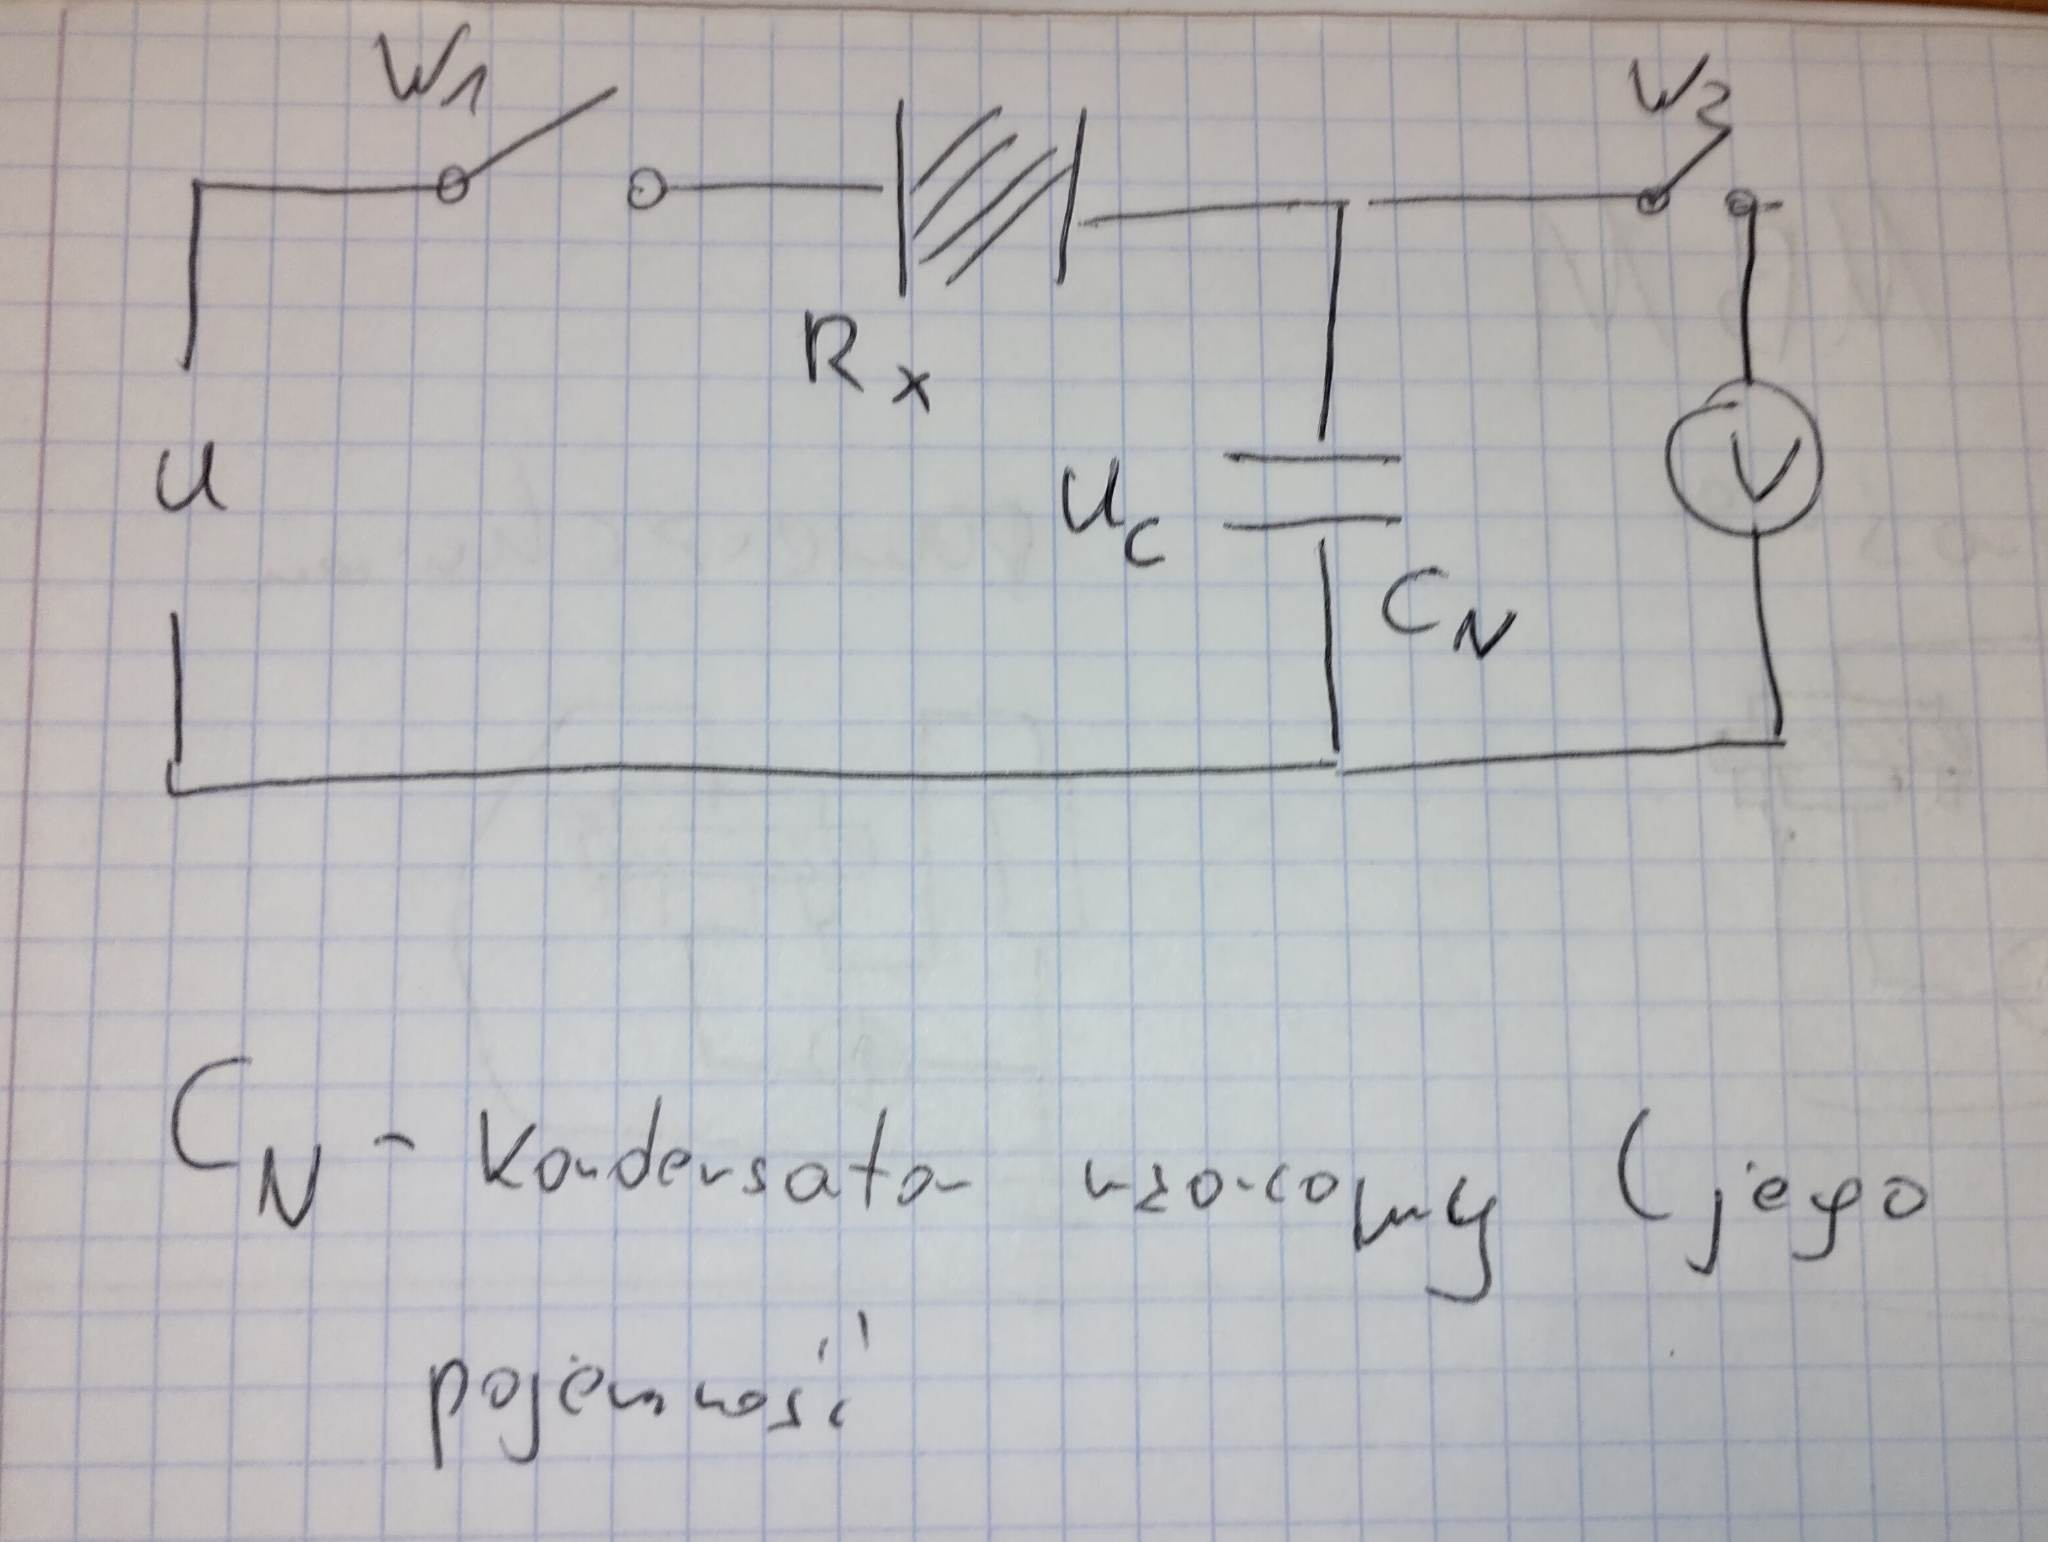 W1
W2
Rx
U
Uc
V
CN
CN - Kondensator wzorcowy (jego
pojemność